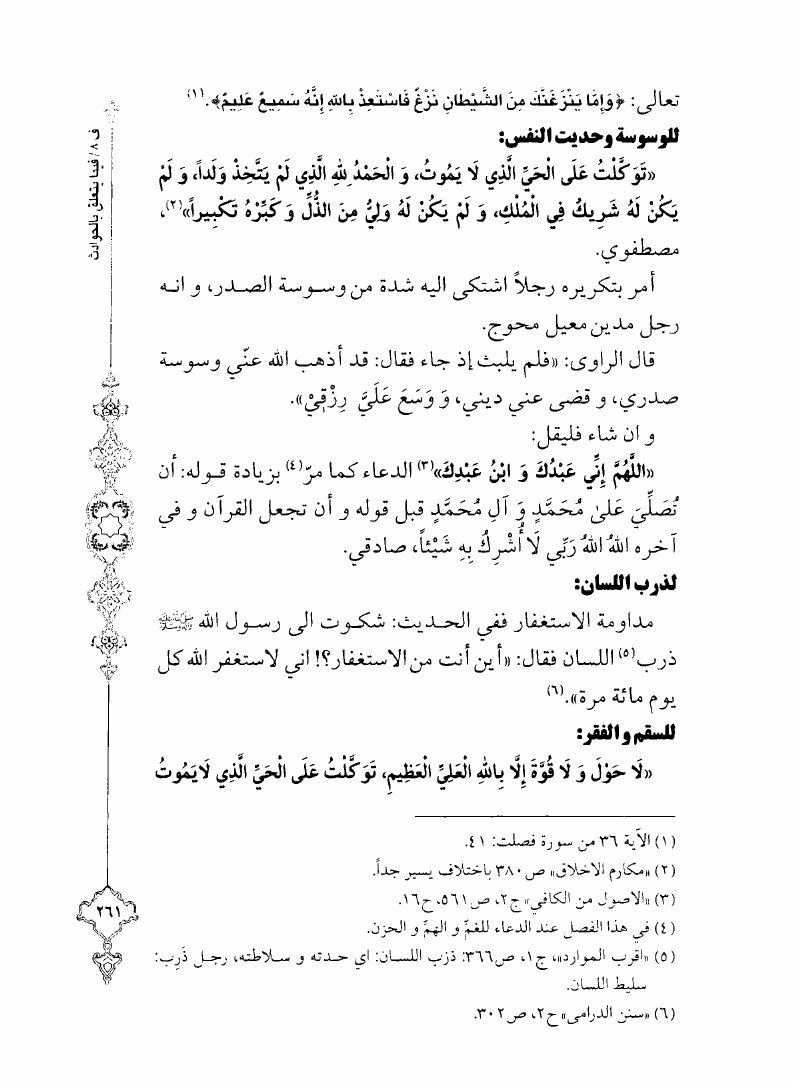 تعالى: ﴿وَإِمَّا يَنْزَغَنَّكَ مِنَ الشَّيْطَانِ نَزْغٌ فَاسْتَعِذْ بِاللهِ إِنَّهُ سَمِيعٌ عَلِيمٌ﴾.(١)
للوسوسة وحديث النفس:
«تَوَكَّلْتُ عَلَى الْحَيِّ الَّذِي لَا يَمُوتُ، وَ الْحَمْدُ لِلهِ الَّذِي لَمْ يَتَّخِذْ وَلَداً، وَ لَمْ
يَكُنْ لَهُ شَرِيكٌ فِي الْمُلْكِ، وَ لَمْ يَكُنْ لَهُ وَلِيٌّ مِنَ الذُّلِّ وَ كَبِّرْهُ تَكْبِيراً»(٢)،
مصطفوي.
أمر بتكريره رجلاً اشتكى اليه شدة من وسوسة الصدر، و انه
رجل مدين معيل محوج.
قال الراوى: «فلم يلبث إذ جاء فقال: قد أذهب الله عنّي وسوسة
صدري، و قضى عني ديني، وَ وَسَعَ عَلَيَّ رِزْقِيْ».
و ان شاء فليقل:
«اللَّهُمَّ إِنِّي عَبْدُكَ وَ ابْنُ عَبْدِكَ»(٣) الدعاء كما مرّ(٤) بزيادة قوله: أن
تُصَلِّيَ عَلىٰ مُحَمَّدٍ وَ آلِ مُحَمَّدٍ قبل قوله و أن تجعل القرآن و في
آخره اللهُ اللهُ رَبِّي لَا أُشْرِكُ بِهِ شَيْئاً، صادقي.
لذرب اللسان:
مداومة الاستغفار ففي الحديث: شكوت الى رسول الله ﷺ
ذرب(٥) اللسان فقال: «أين أنت من الاستغفار؟! اني لاستغفر الله كل
يوم مائة مرة».(٦)
للسقم و الفقر:
«لَا حَوْلَ وَ لَا قُوَّةَ إِلَّا بِاللهِ الْعَلِيِّ الْعَظِيمِ، تَوَكَّلْتُ عَلَى الْحَيِّ الَّذِي لَا يَمُوتُ
(١) الآية ٣٦ من سورة فصلت: ٤١.
(٢) «مكارم الاخلاق» ص ٣٨٠ باختلاف يسير جداً.
(٣) «الاصول من الكافي» ج٢، ص٥٦١، ح١٦.
(٤) في هذا الفصل عند الدعاء للغمّ و الهمّ و الحزن.
(٥) «اقرب الموارد»، ج١، ص٣٦٦: ذرب اللسان: اي حدته و سلاطته، رجل ذَرِب:
سليط اللسان.
(٦) «سنن الدرامى» ح٢، ص٣٠٢.
ف ٨ / فيما يتعلق بالحوادث
٢٦١